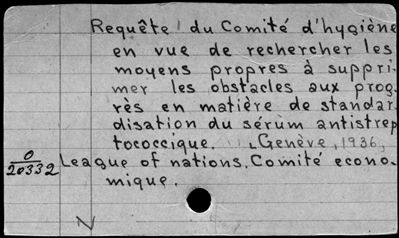 Requête du Comité d'hygiène
en vue de rechercher les
moyens propres à suppri-
mer les obstacles aux prog-
rès en matière de standar-
disation du sérum antistrep
tococcique. Genève, 1936,
O
20332
League of nations. Comité écono-
mique.
N